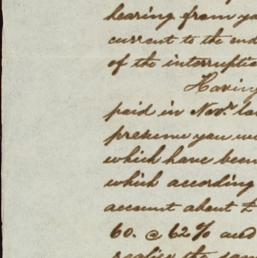 hearing from yo
current to the end
of the interruptio
Having
paid in Novr. la
presume you wi
which have been
which according
account about £
60. @ 62% and
realize the same